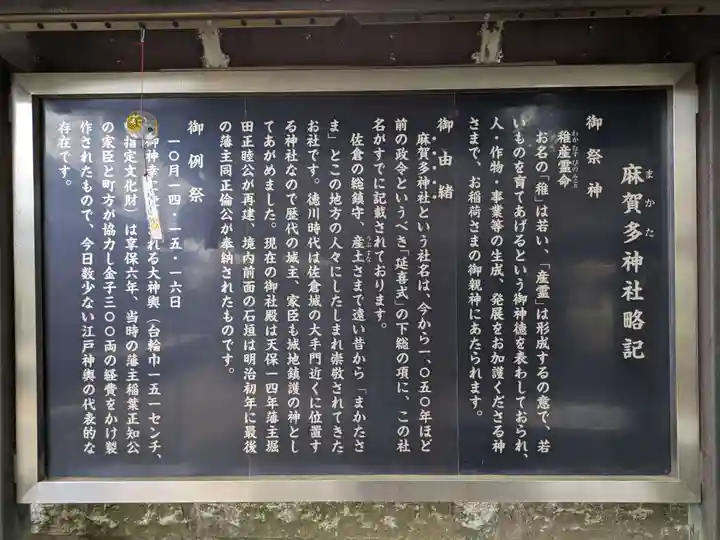 麻賀多神社略記
まかた
御祭神
わかむすびのみこと
稚産霊命
お名の「稚」は若い、「産霊」は形成するの意で、若
いものを育てあげるという御神徳を表わしておられ、
人・作物・事業等の生成、発展をお加護くださる神
さまで、お稲荷さまの御親神にあたられます。
御由緒
麻賀多神社という社名は、今から一、〇五〇年ほど
前の政令というべき「延喜式」の下総の項に、この社
名がすでに記載されております。
佐倉の総鎮守、産土さまで遠い昔から「まかたさ
うぶすな
ま」とこの地方の人々にしたしまれ崇敬されてきた
お社です。徳川時代は佐倉城の大手門近くに位置す
る神社なので歴代の城主、家臣も城地鎮護の神とし
てあがめました。現在の御社殿は天保一四年藩主堀
田正睦公が再建、境内前面の石垣は明治初年に最後
の藩主同正倫公が奉納されたものです。
御例祭
一〇月一四・一五・一六日
御神幸に れる大神輿(台輪巾一五一センチ、
指定文化財)は享保六年、当時の藩主稲葉正知公
の家臣と町方が協力し金子三〇〇両の経費をかけ製
作されたもので、今日数少ない江戸神輿の代表的な
存在です。